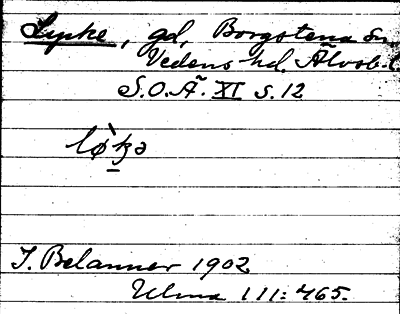 Lycke, gd, Borgstena sn
Vedens hd. Älvsb. l
S.O.Ä. XI s. 12
I. Belanner 1902
Ulma 111:465.